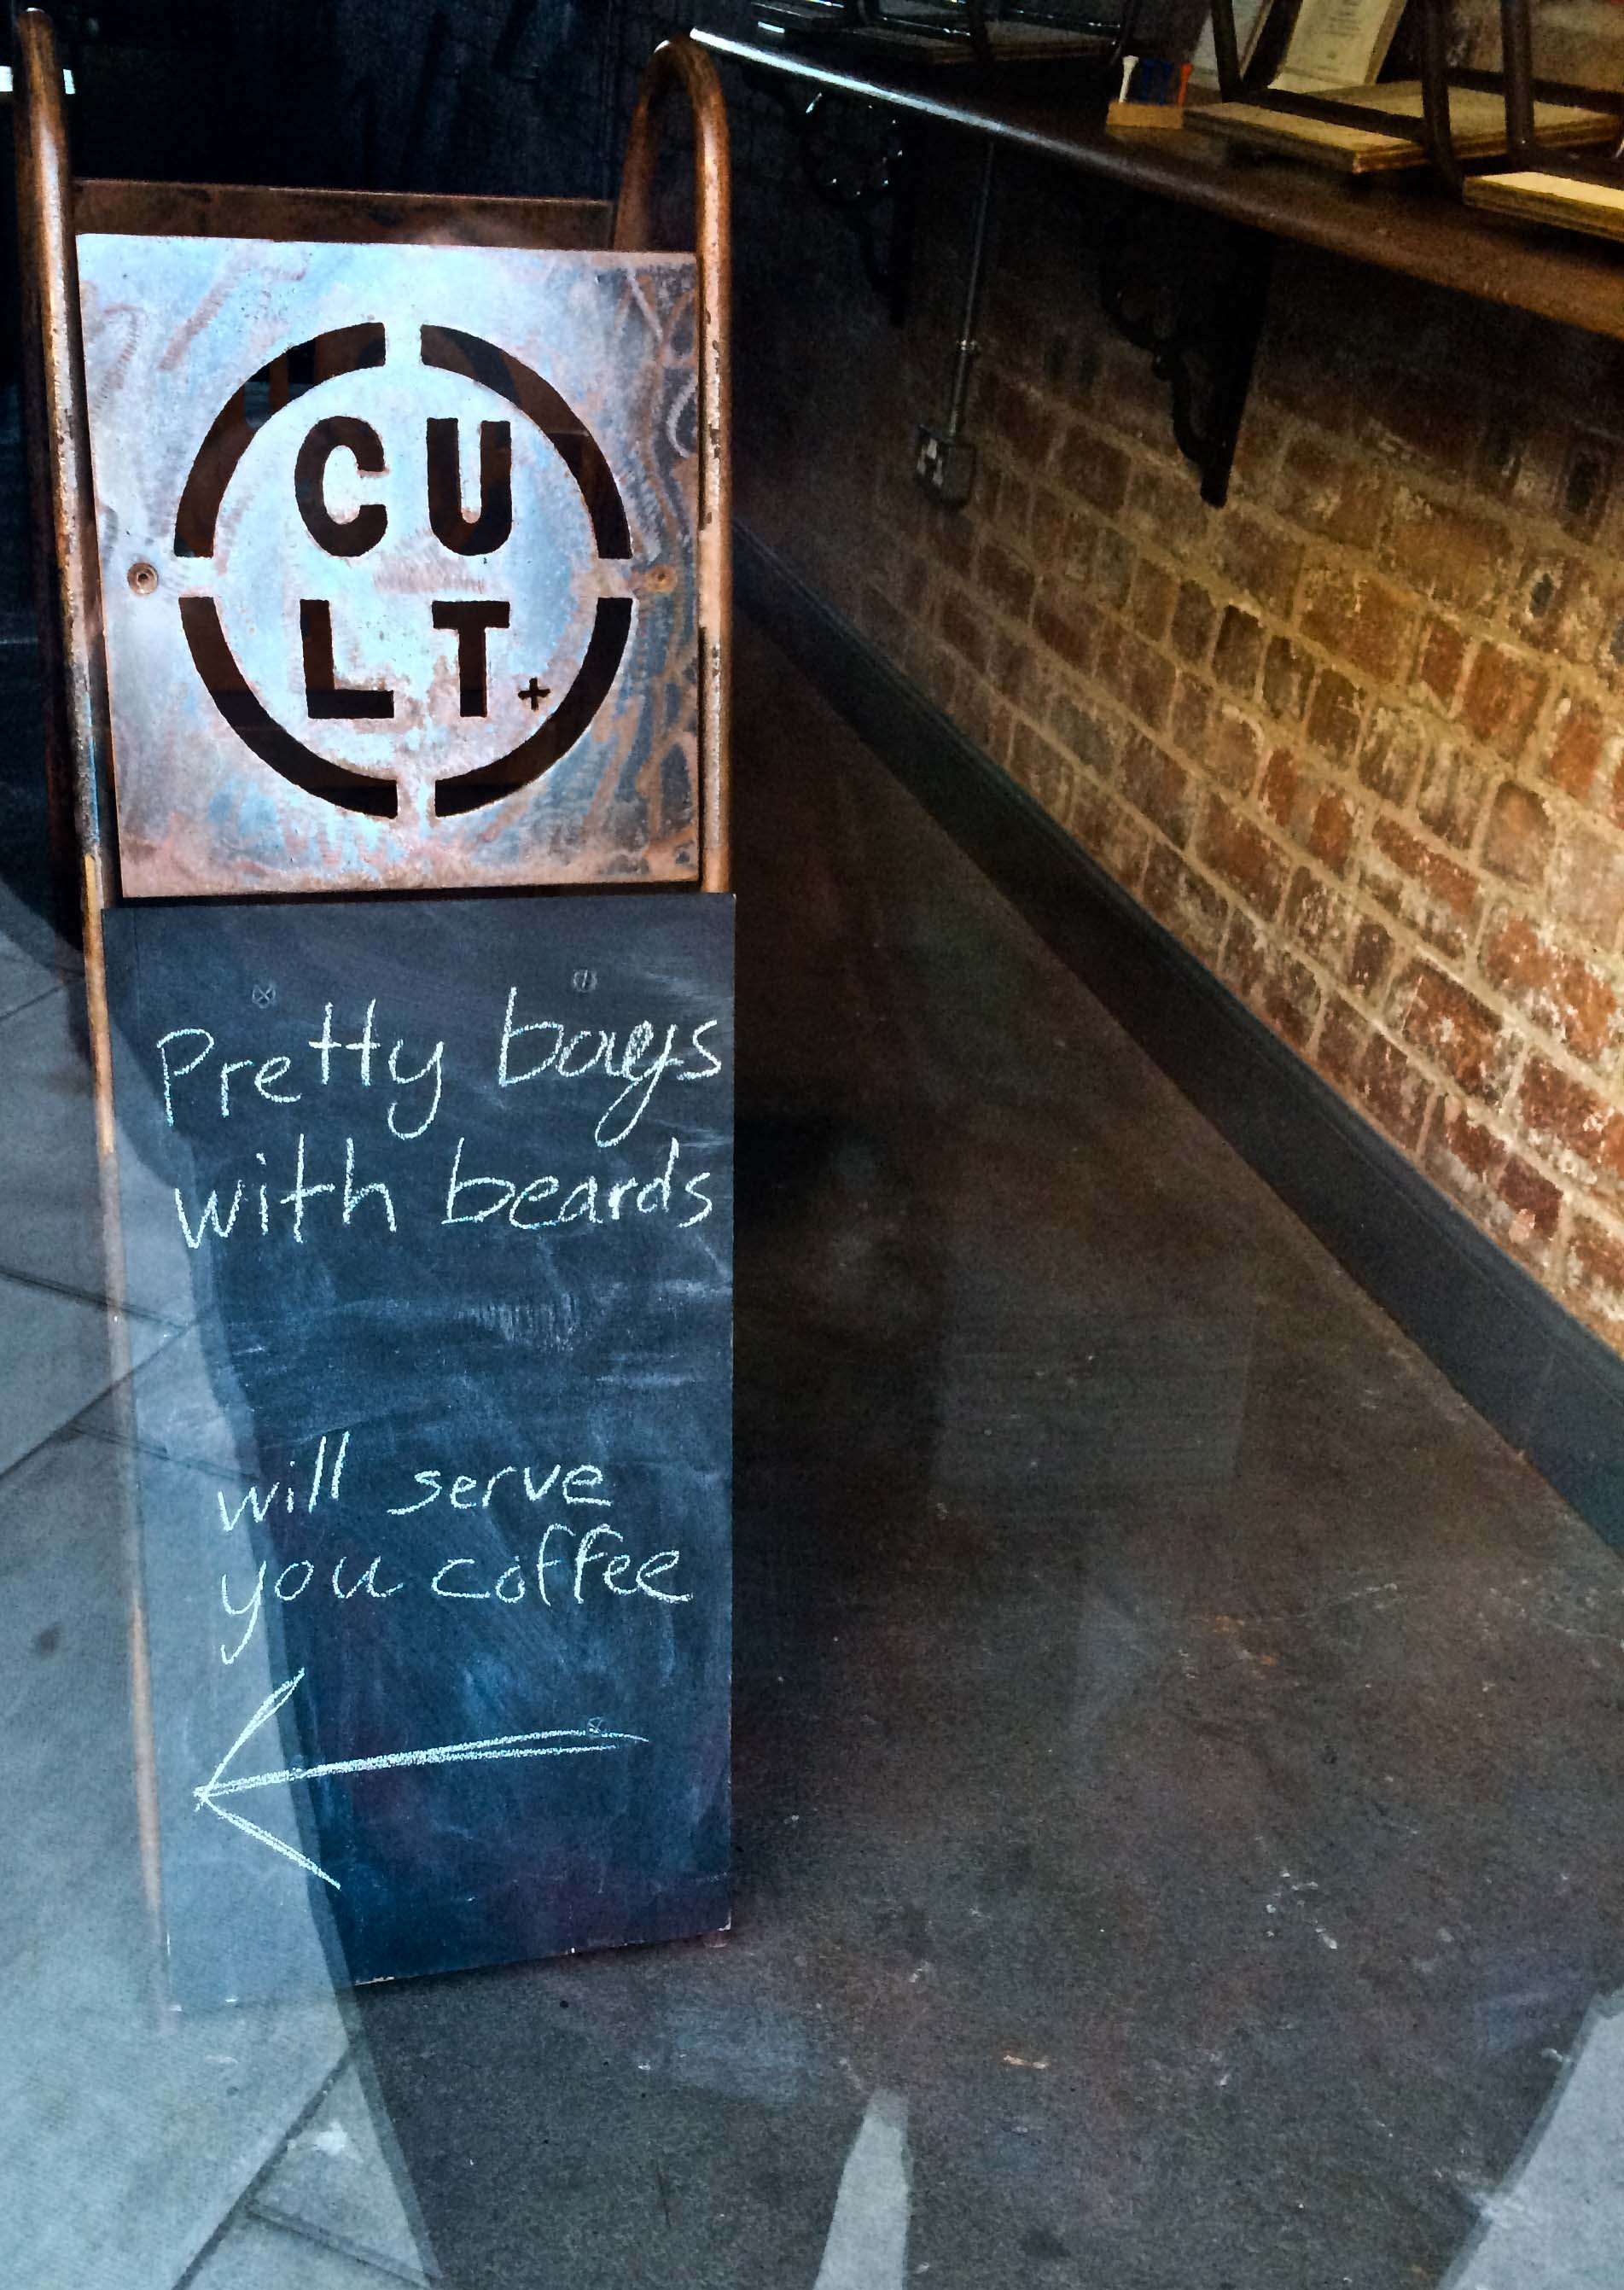 CU
LT+
Pretty boys
with beards
will serve
you coffee